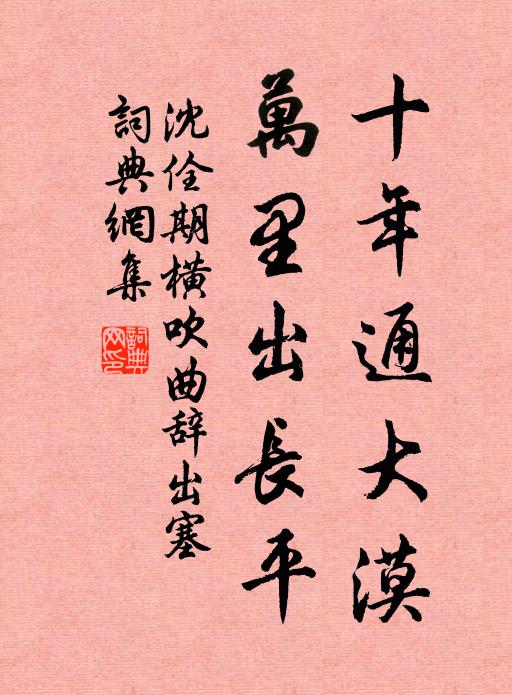 十年通大漠
萬里出長平
沈佺期橫吹曲辞出塞
詞典網集
詞典网印